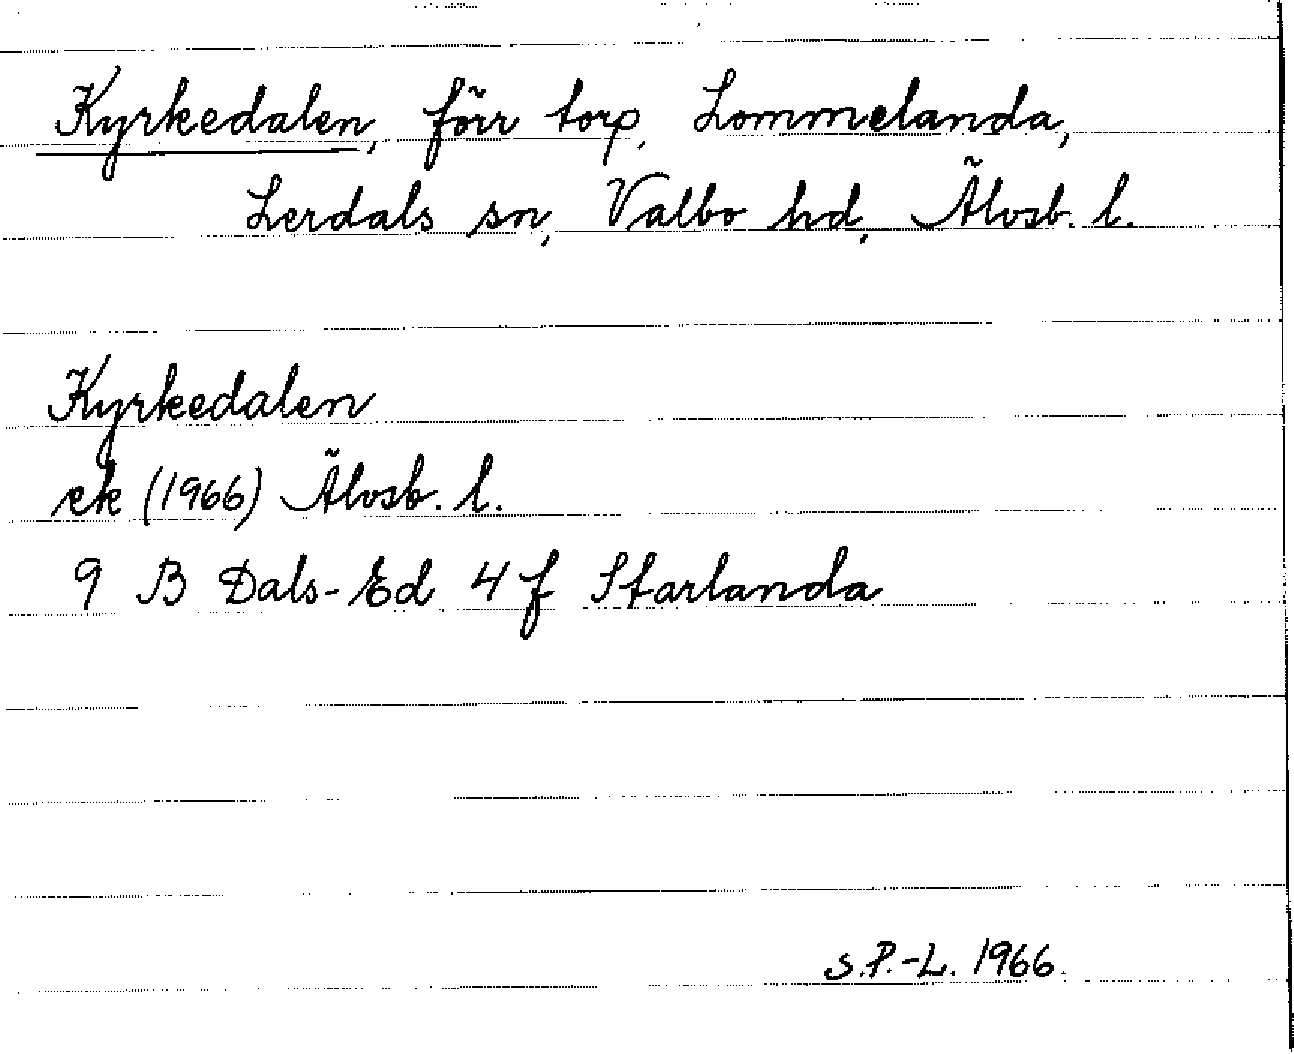 Kyrkedalen, förr torp, Lommelanda,
Lerdals sn, Valbo hd, Älvsb. l.
Kyrkedalen
ek (1966) Älvsb. l.
9 B Dals-Ed 4 f Starlanda
S.P.-L. 1966